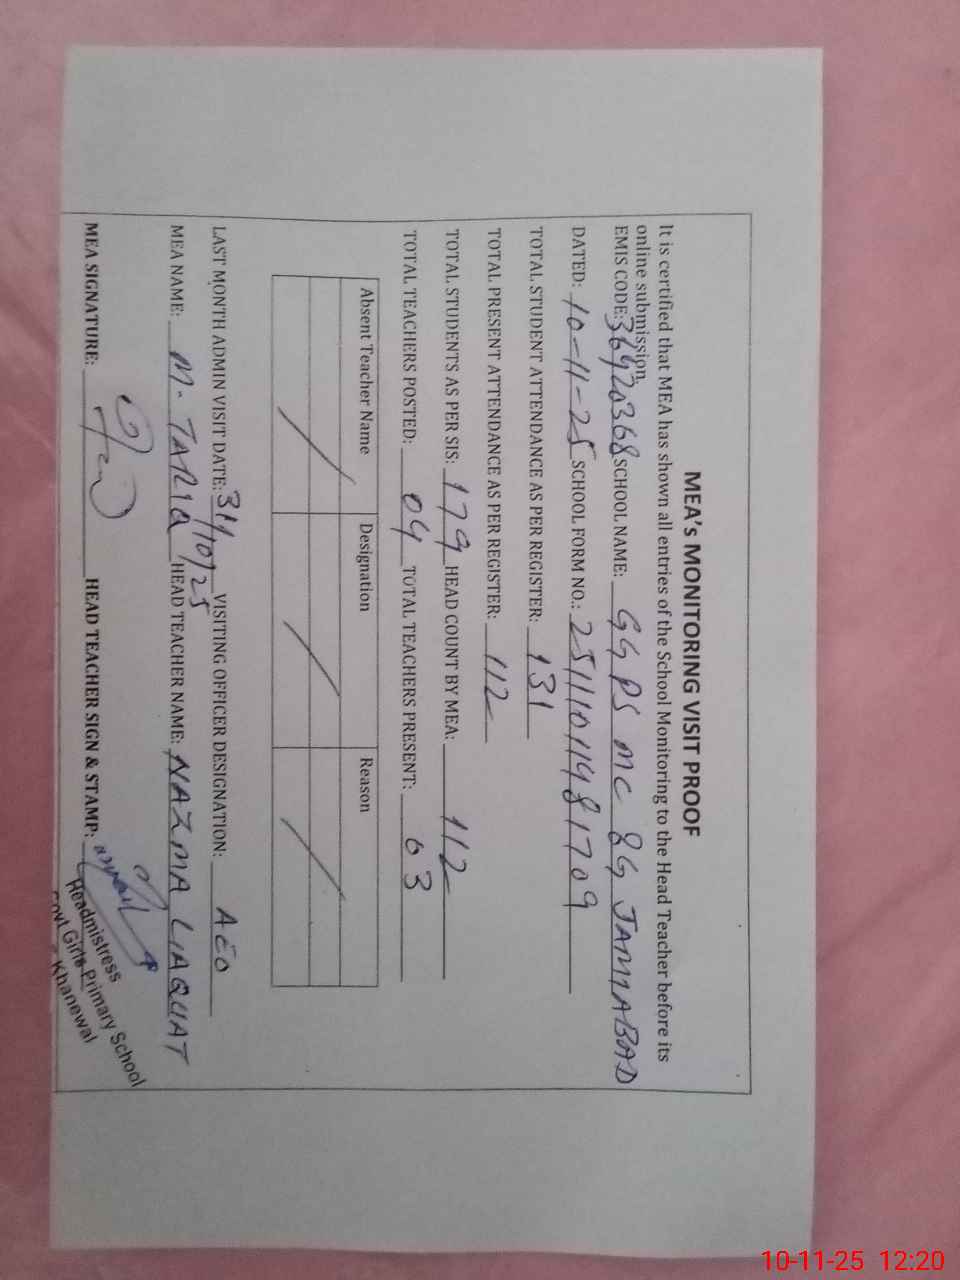 MEA's MONITORING VISIT PROOF
It is certified that MEA has shown all entries of the School Monitoring to the Head Teacher before its
online submission.
EMIS CODE: 36920368 SCHOOL NAME: GGPS MC 8G JAMMABAD
DATED: 10-11-25 SCHOOL FORM NO.: 2511101148 1709
TOTAL STUDENT ATTENDANCE AS PER REGISTER: 131
TOTAL PRESENT ATTENDANCE AS PER REGISTER: 112
TOTAL STUDENTS AS PER SIS: 179 HEAD COUNT BY MEA: 112
TOTAL TEACHERS POSTED: 04 TOTAL TEACHERS PRESENT: 03
Absent Teacher Name Designation Reason
LAST MONTH ADMIN VISIT DATE: 31/10/25 VISITING OFFICER DESIGNATION: AEO
MEA NAME: M. TARIQ HEAD TEACHER NAME: NAZMA LIAQUAT
MEA SIGNATURE: HEAD TEACHER SIGN & STAMP:
Headmistress
Govt Girls Primary School
Khanewal
10-11-25 12:20